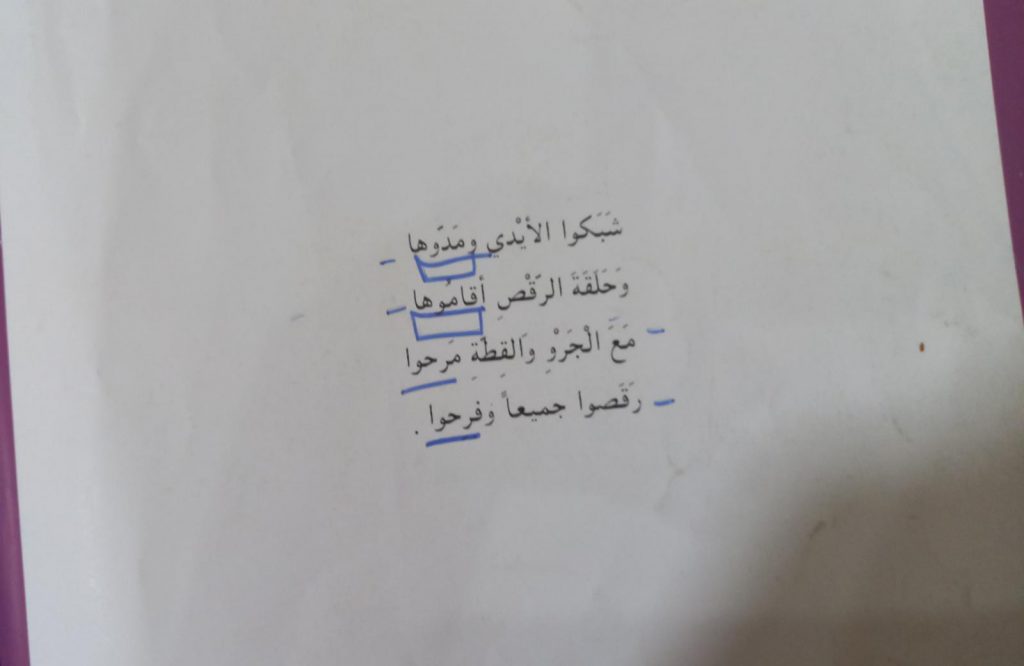 شَبَكوا الأيْدي ومَدّوها
وَحَلَقَةَ الرّقْصِ أقامُوها
مَعَ الْجَرْوِ وَالقِطّةِ مَرحوا
رَقَصوا جميعاً وَفرحوا .